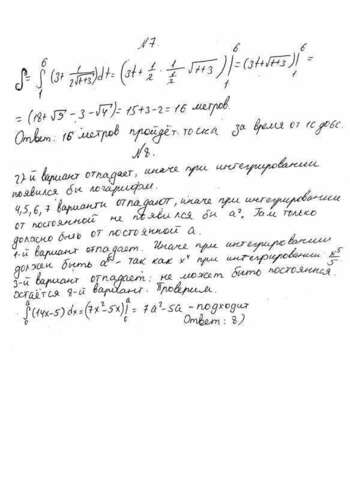 №7.
S = ∫₁⁶ (3 + 1/(2√(t+3))) dt = (3t + 1/2 · 1/(1/2) √(t+3)) |₁⁶ = (3t + √(t+3)) |₁⁶ =
= (18 + √9 - 3 - √4) = 15 + 3 - 2 = 16 метров.
Ответ: 16 метров пройдёт точка за время от 1с до 6с.
№8.
2) й вариант отпадает, иначе при интегрировании
появился бы логарифм.
4, 5, 6, 7 варианты отпадают, иначе при интегрировании
от постоянной не появился бы a². Там только
должно быть от постоянной a.
1-й вариант отпадает. Иначе при интегрировании
должен быть a⁵ - так как x⁴ при интегрировании x⁵/5
3-й вариант отпадает: не может быть постоянная.
Остаётся 8-й вариант. Проверим.
∫₀ᵃ (14x-5) dx = (7x²-5x)|₀ᵃ = 7a²-5a - подходит
Ответ: 8)